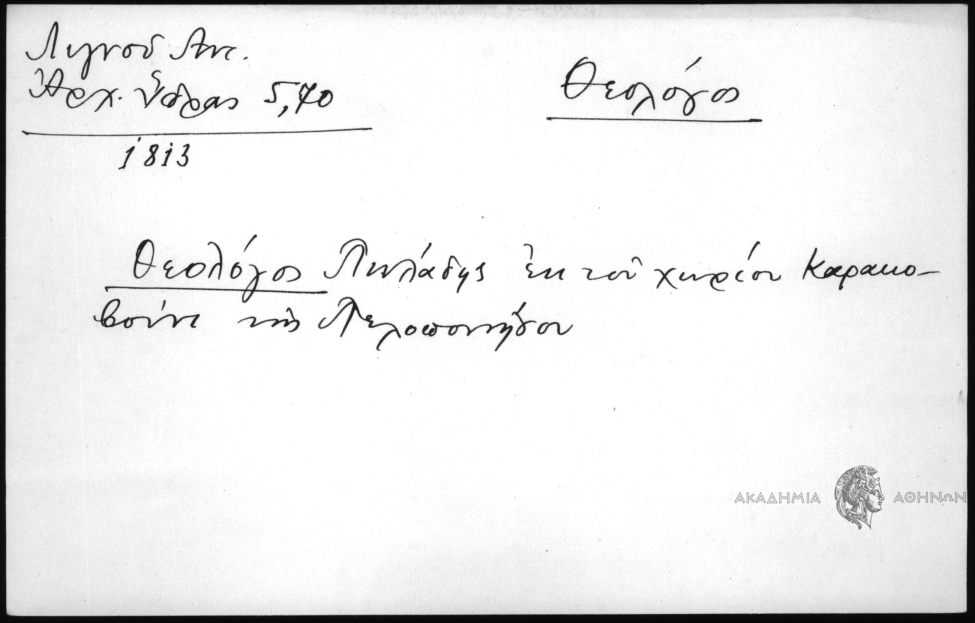 Λιγνοῦ Ἀντ.
Ἀρχ. Ὕδρας 5,70
1813
Θεολόγος
Θεολόγος Πυλάδης ἐκ τοῦ χωρίου Καρακο-
βούνι τῆς Πελοποννήσου
ΑΚΑΔΗΜΙΑ ΑΘΗΝΩΝ